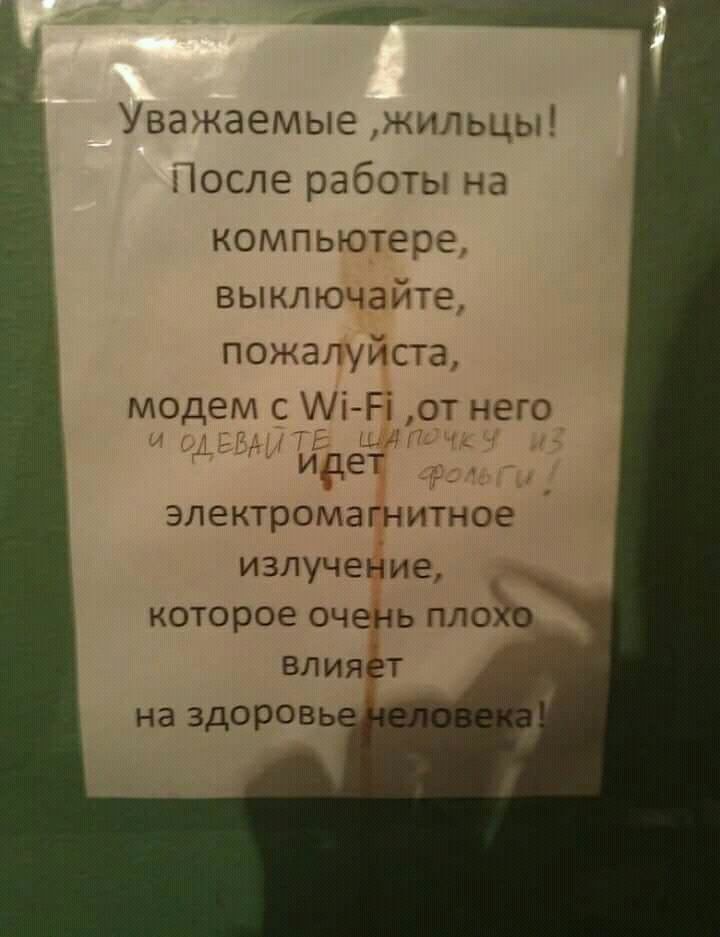 Уважаемые ,жильцы!
После работы на
компьютере,
выключайте,
пожалуйста,
модем с Wi-Fi ,от него
и ОДЕВАЙТЕ ШАПОЧКУ ИЗ
идет
фольги!
электромагнитное
излучение,
которое очень плохо
влияет
на здоровье человека!